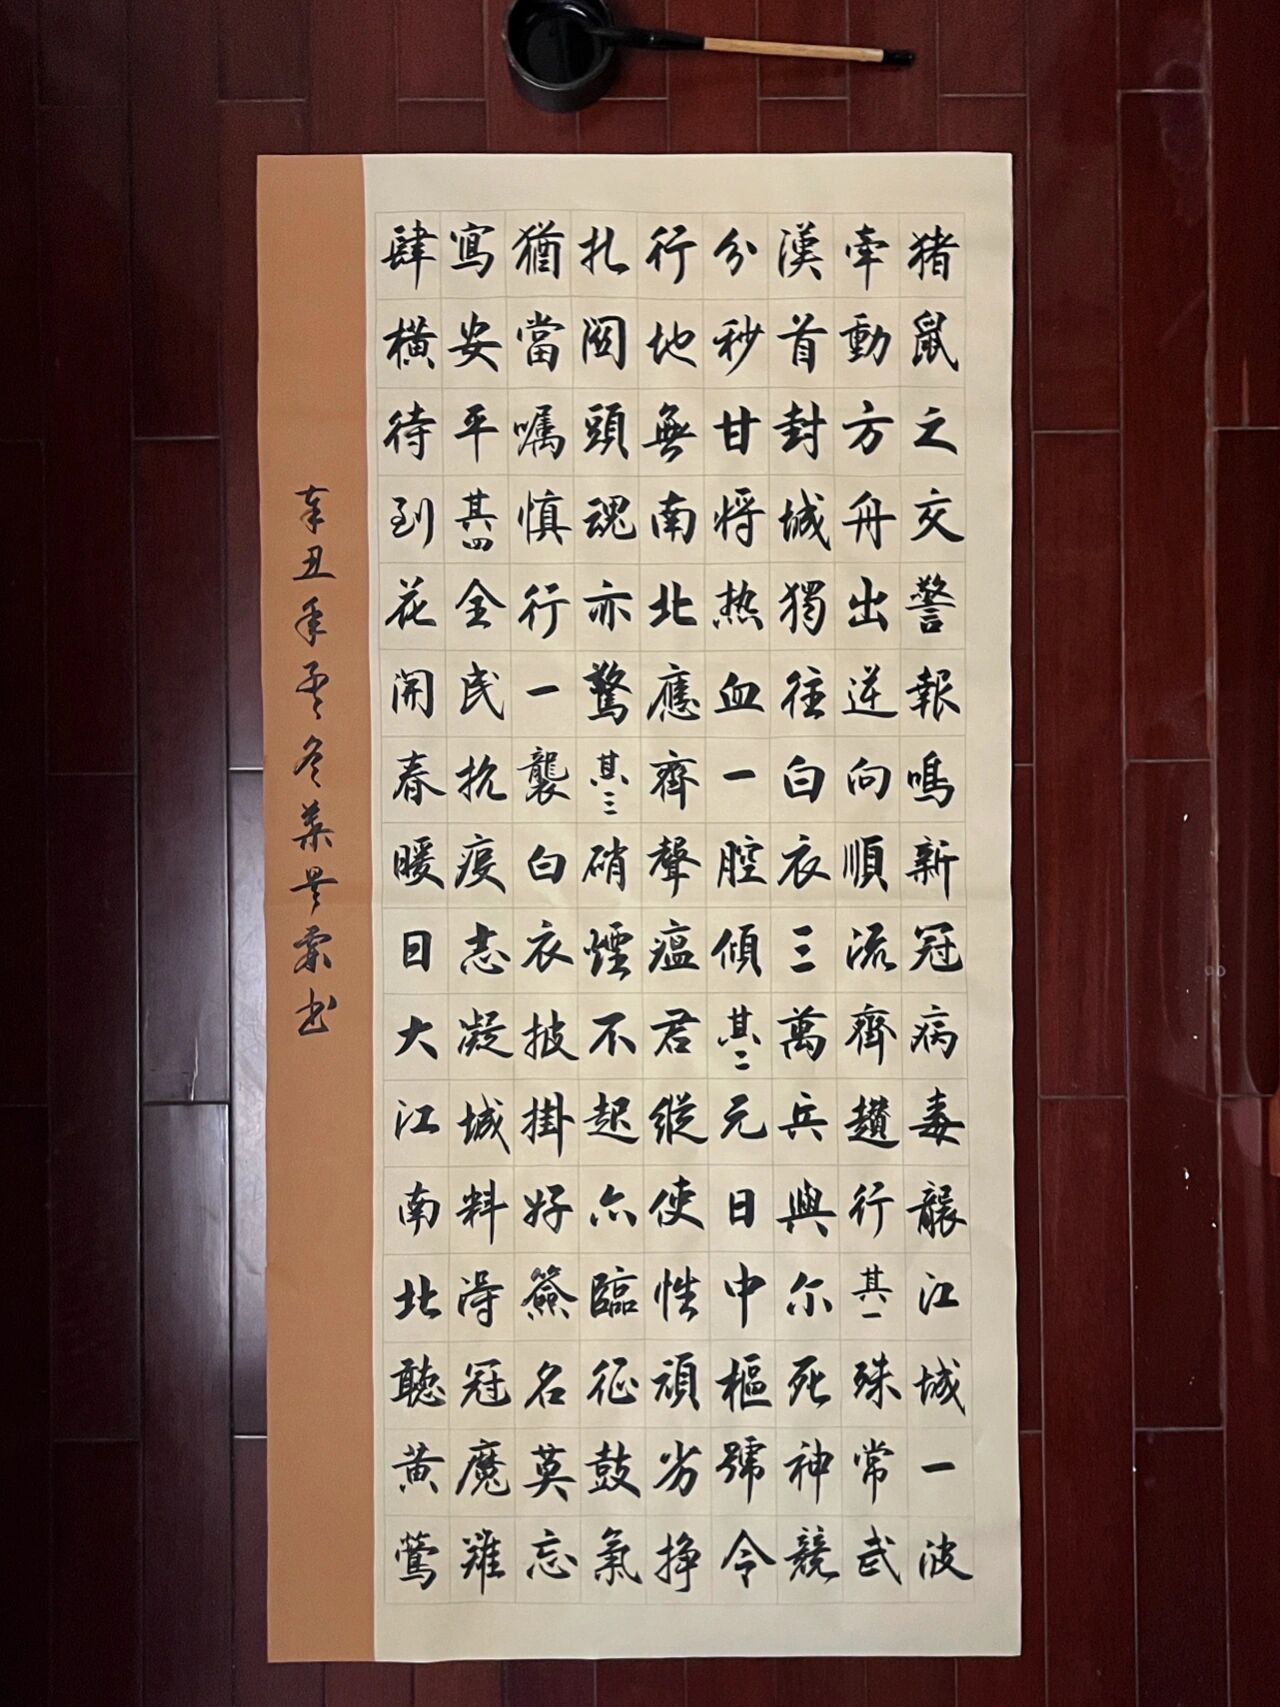 猪鼠之交警報鳴新冠病毒襲江城一波
牽動方舟出逆向順流齊讚行其一殊常武
漢首封城獨往白衣三萬兵與尔死神競
分秒甘将热血一腔傾其二元日中樞號令
行地無南北應齊聲瘟君縱使性頑劣掙
扎閻頭魂亦驚其三硝煙不起亦臨征鼓氣
猶當囑慎行一襲白衣披掛好簽名莫忘
寫安平其四全民抗疫志凝城料得冠魔難
肆橫待到花開春暖日大江南北聽黃鶯
辛丑年孟冬葉景霖书